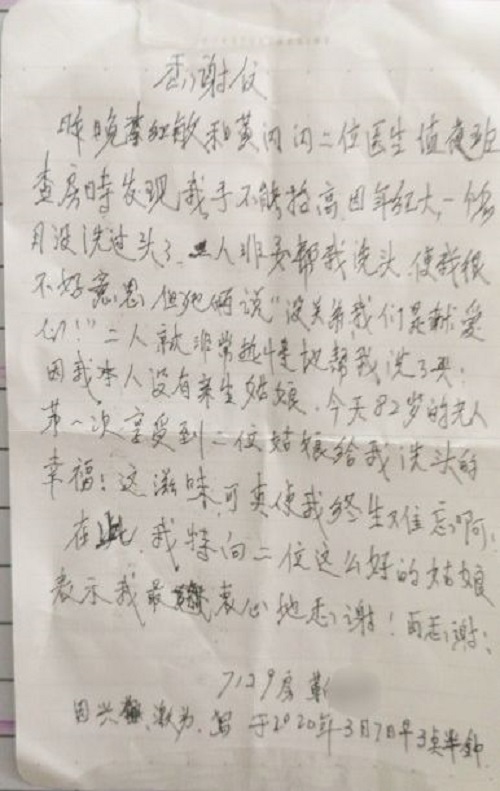 感谢信
昨晚李红敏和黄闪闪二位医生值夜班
查房时发现我手不能抬高因年纪大,一个多
月没洗过头了.二人非要帮我洗头.使我很
不好意思.但她俩说"没关系我们是献爱
心!"二人就非常热情地帮我洗了头.
因我本人没有亲生姑娘.今天82岁的老人
第一次享受到二位姑娘给我洗头的
幸福!这滋味可真使我终生难忘啊!
在此.我特向二位这么好的姑娘
表示我最衷心地感谢!再感谢!
7129房
因兴奋.激动.写于2020年3月7日早3点半钟.